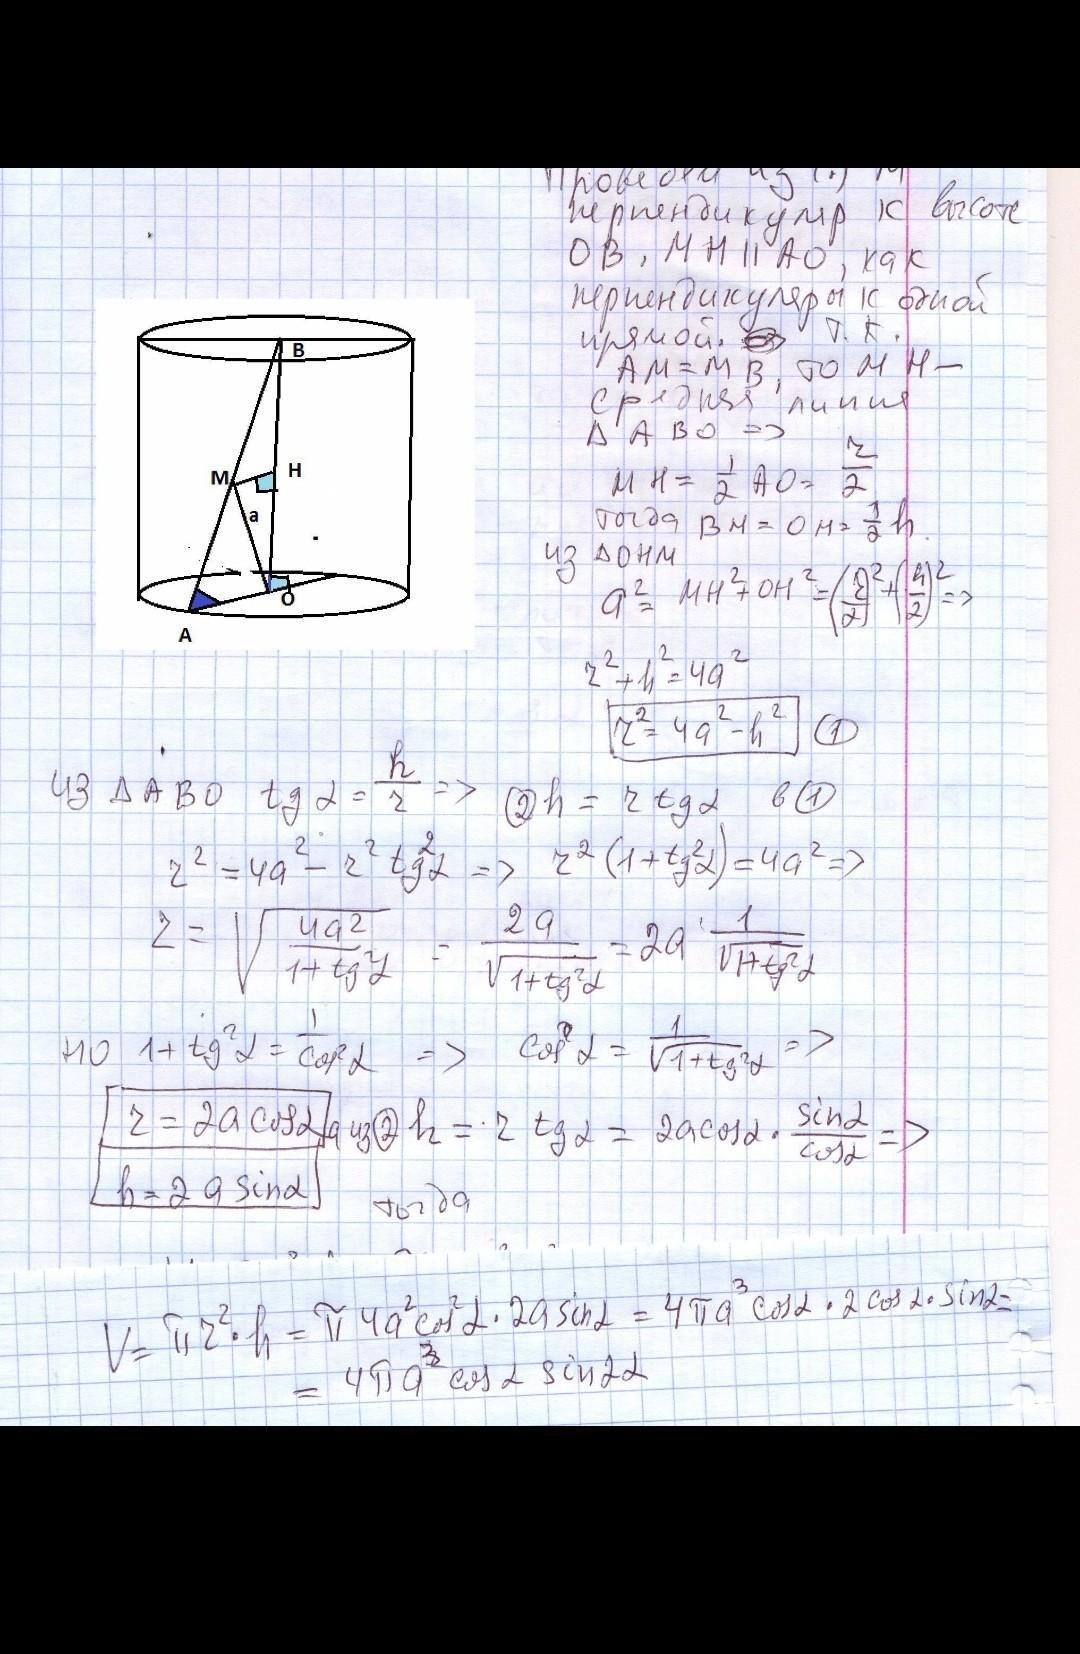 Проведём из (.) М
перпендикуляр к высоте
ОВ, МН || АО, как
перпендикуляры к одной
прямой. Т.к.
АМ = МВ, то МН –
средняя линия
Δ АВО =>
МН = 1/2 АО = r/2
тогда ВН = ОН = 1/2 h.
из ΔОНМ
a² = МН² + ОН² = (r/2)² + (h/2)² =>
r² + h² = 4a²
r² = 4a² - h² (1)
B
M
H
a
O
A
из Δ АВО tg α = h/r => (2) h = r tg α в (1)
r² = 4a² - r² tg²α => r² (1 + tg²α) = 4a² =>
r = √(4a²/(1 + tg²α)) = 2a/√(1 + tg²α) = 2a · 1/√(1 + tg²α)
но 1 + tg²α = 1/cos²α => cos α = 1/√(1 + tg²α) =>
r = 2a cos α а из (2) h = r tg α = 2a cos α · sin α/cos α =>
h = 2a sin α тогда
V = π r² · h = π 4a² cos²α · 2a sin α = 4πa³ cos α · 2 cos α · sin α =
= 4πa³ cos α sin 2α